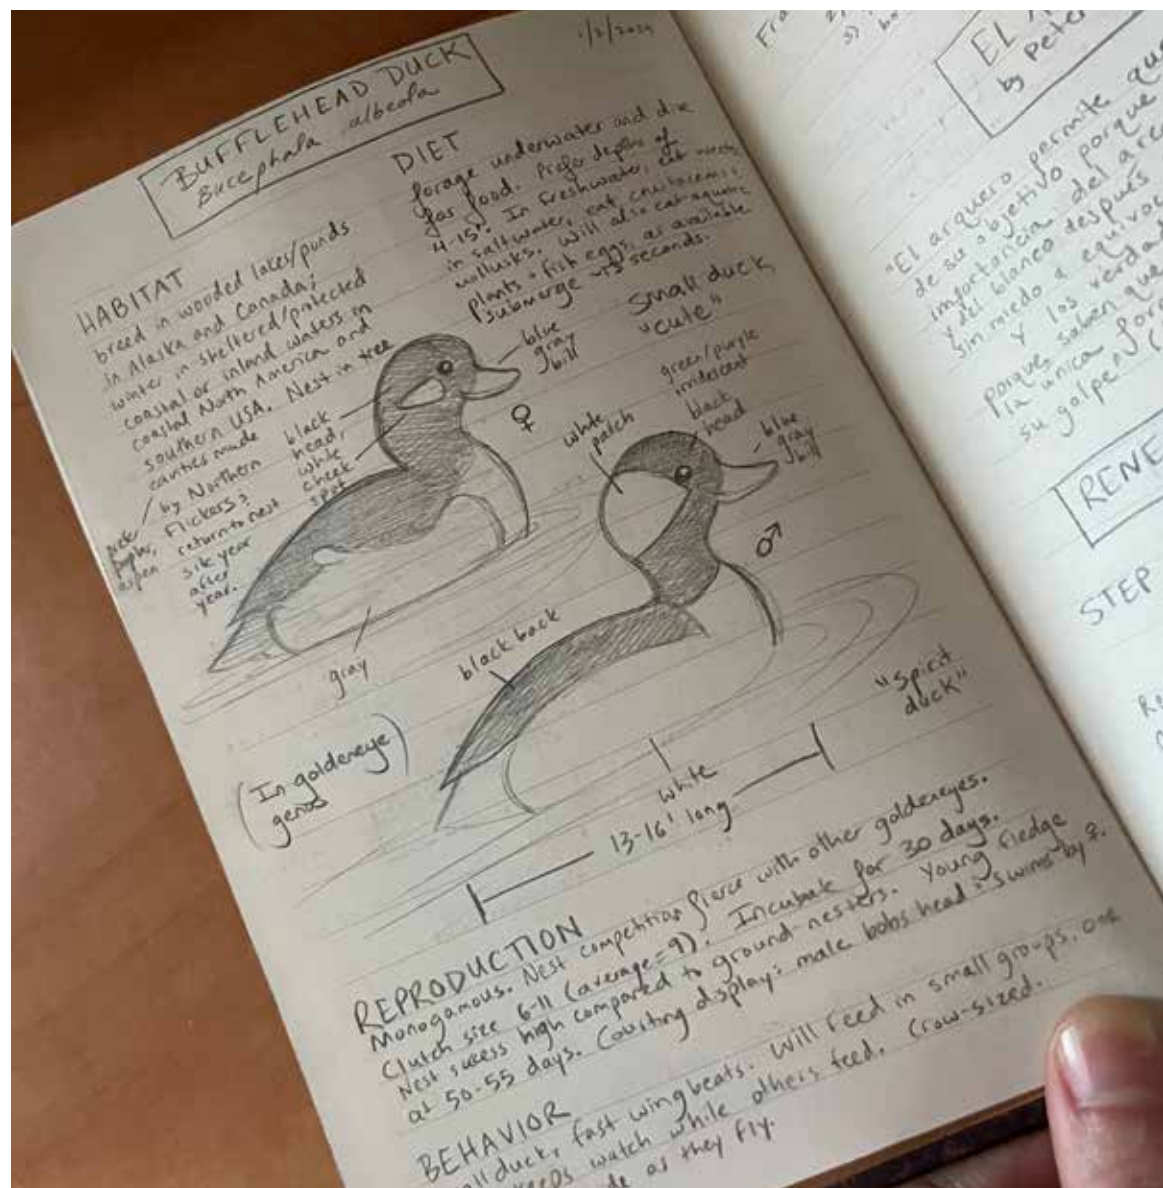 1/2/2024
BUFFLEHEAD DUCK
Bucephala albeola
HABITAT
breed in wooded lakes/ponds
in Alaska and Canada;
winter in sheltered/protected
coastal or inland waters in
coastal North America and
southern USA. Nest in tree
cavities made
by Northern
Flickers?
return to nest
site year
after
year.
prefer
poplar,
aspen
DIET
forage underwater and dive
for food. Prefer depths of
4-15'. In freshwater, eat
in saltwater, eat crustaceans +
mollusks. Will also eat aquatic
plants + fish eggs, as available
submerge ~15 seconds.
small duck,
"cute"
blue
gray
bill
♀
black
head,
white
cheek
spot
gray
green/purple
iridescent
black
head
white
patch
blue
gray
bill
♂
black back
white
"spirit
duck"
(In goldeneye
genus)
13-16' long
REPRODUCTION
Monogamous. Nest competition fierce with other goldeneyes.
Clutch size 6-11 (average = 9). Incubate for 30 days.
Nest sucess high compared to ground nesters. Young fledge
at 50-55 days. Courting display: male bobs head + swims by ♀.
BEHAVIOR
all duck, fast wingbeats. Will feed in small groups, one
keeps watch while others feed. Crow-sized.
as they fly.
EL
by Peter
"El arquero permite que
de su objetivo porque
importancia del arco
y del blanco después
sin miedo a equivoc
y los verdad
porque saben que
la unica form
su golpe" (
RENE
STEP